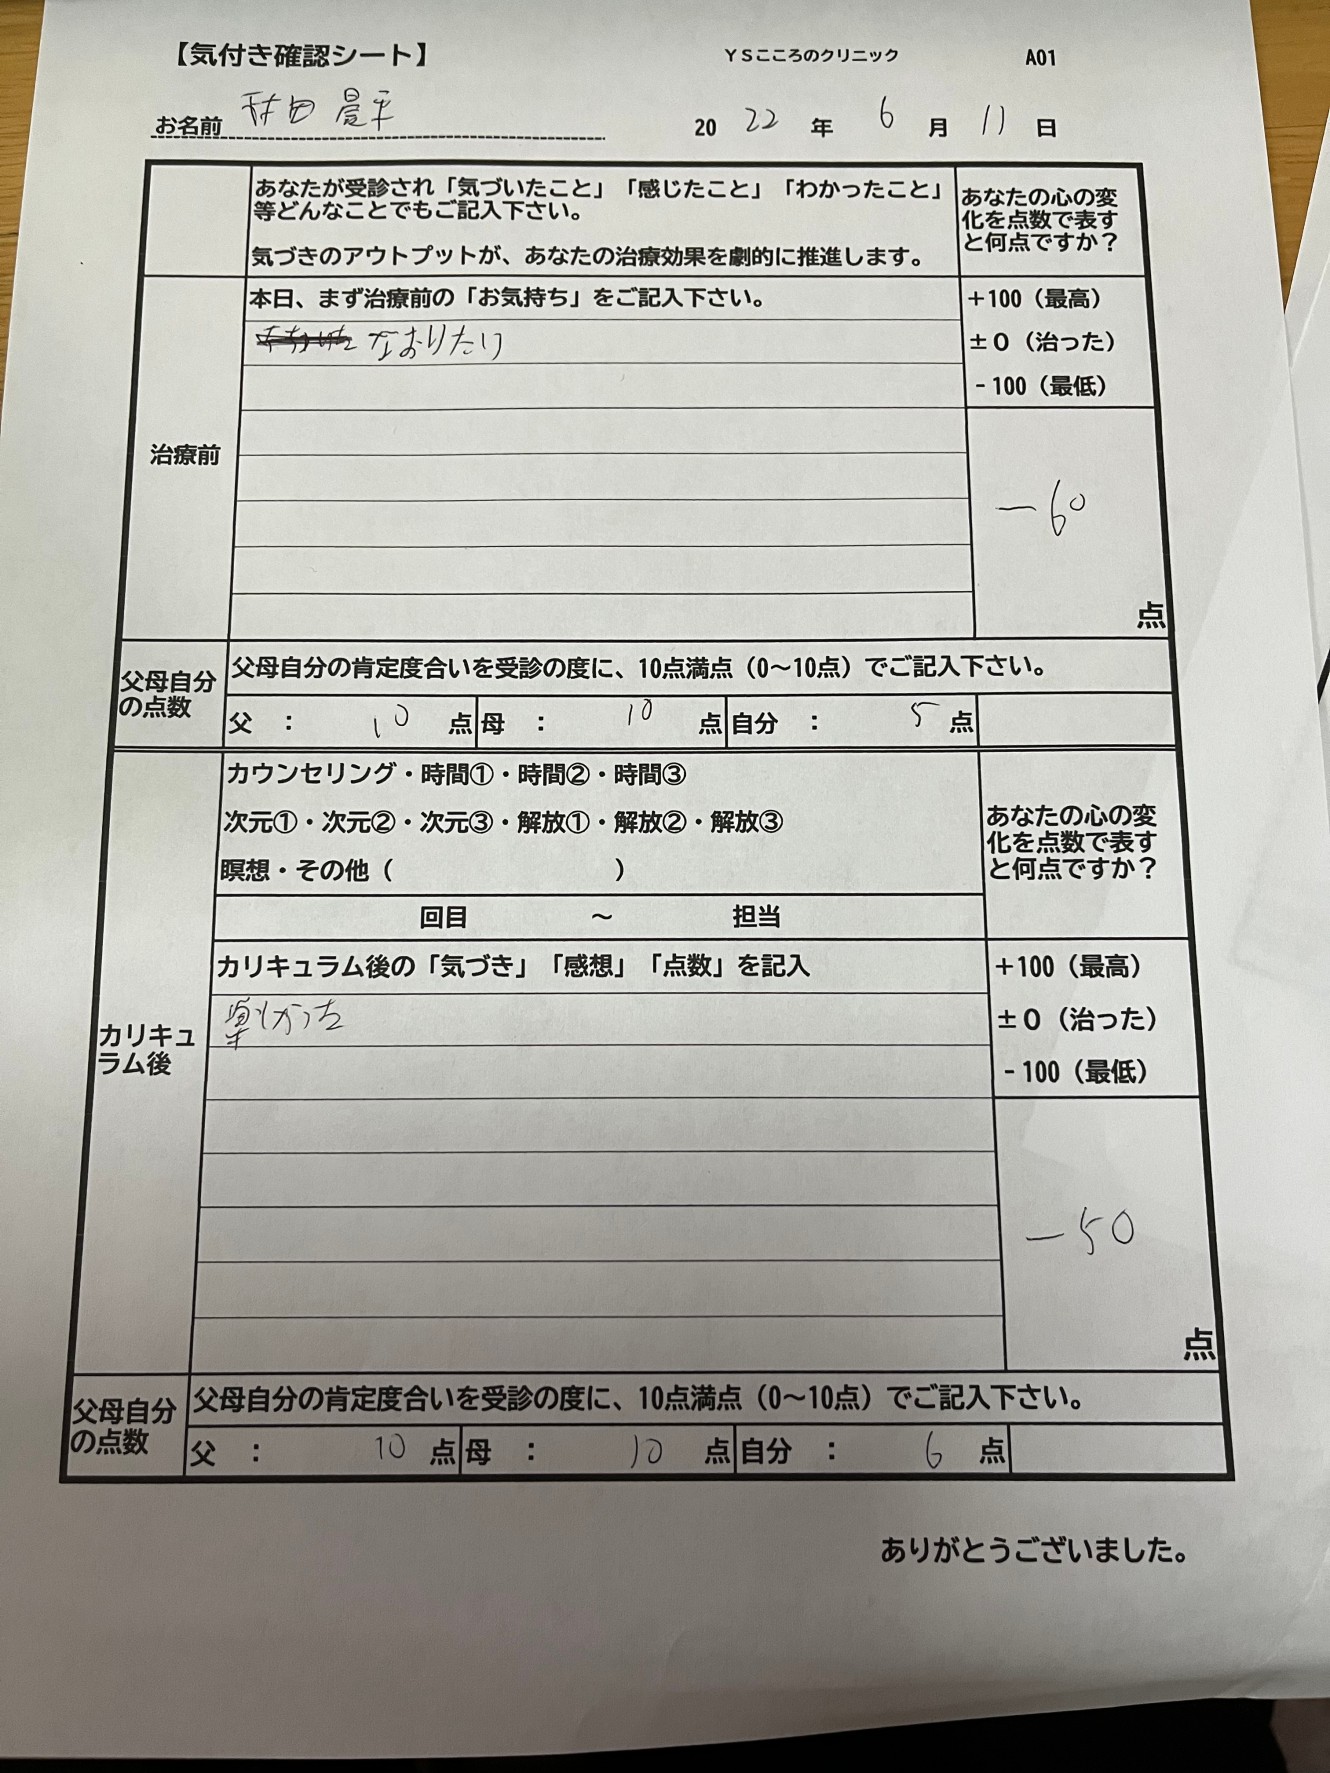 【気付き確認シート】 YSこころのクリニック A01
お名前 村田 晨平 2022年6月11日
あなたが受診され「気づいたこと」「感じたこと」「わかったこと」
等どんなことでもご記入下さい。
気づきのアウトプットが、あなたの治療効果を劇的に推進します。
あなたの心の変
化を点数で表す
と何点ですか？
治療前
本日、まず治療前の「お気持ち」をご記入下さい。
なおりたい
+100（最高）
±0（治った）
-100（最低）
-60
点
父母自分
の点数
父母自分の肯定度合いを受診の度に、10点満点（0～10点）でご記入下さい。
父 ： 10 点 母 ： 10 点 自分 ： 5 点
カリキュ
ラム後
カウンセリング・時間①・時間②・時間③
次元①・次元②・次元③・解放①・解放②・解放③
瞑想・その他（ ）
回目 ～ 担当
あなたの心の変
化を点数で表す
と何点ですか？
カリキュラム後の「気づき」「感想」「点数」を記入
楽しかった
+100（最高）
±0（治った）
-100（最低）
-50
点
父母自分
の点数
父母自分の肯定度合いを受診の度に、10点満点（0～10点）でご記入下さい。
父 ： 10 点 母 ： 10 点 自分 ： 6 点
ありがとうございました。